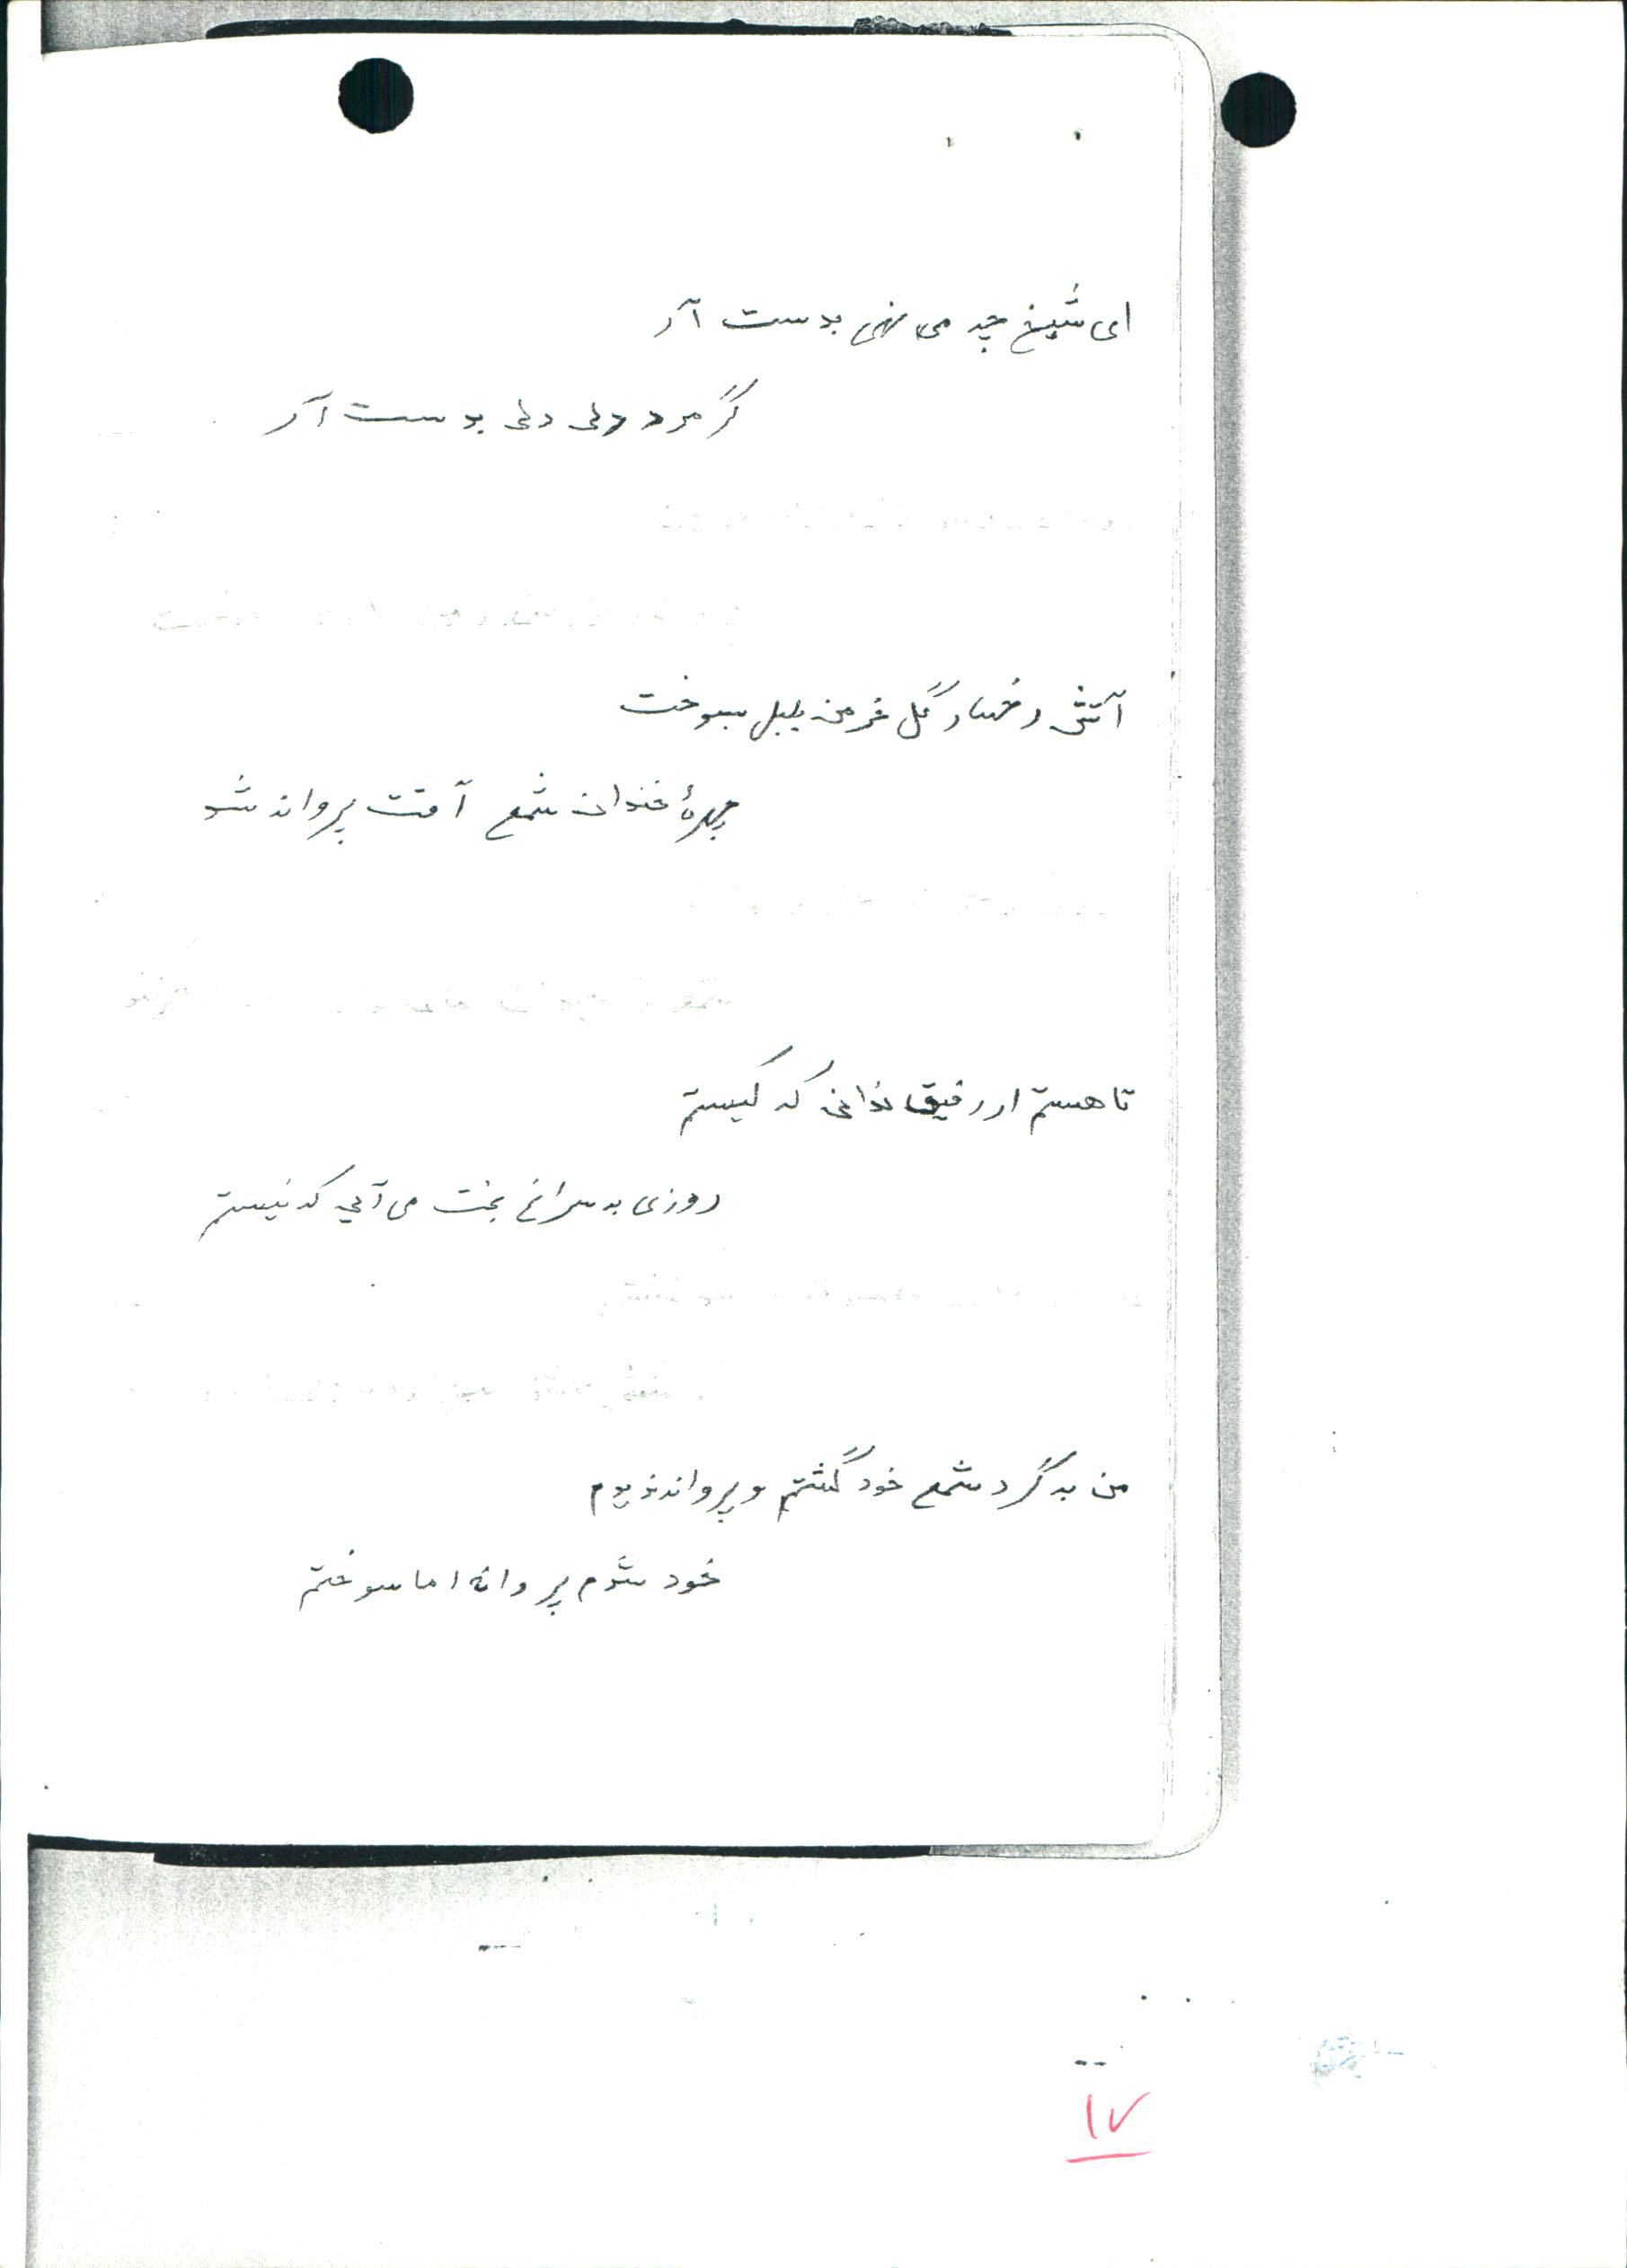 ای شیخ چه می نهی بدست آر
گر مرد دلی دلی بدست آر
آتش رخسار گل خرمن بلبل بسوخت
چهرهٔ خندان شمع آفت پروانه شد
تا هستم ار رفیق ندانی که کیستم
روزی به سراغ بخت می آیی که نیستم
من به گرد شمع خود گشتم و پروانه نبودم
خود شدم پروانه اما سوختم
۱۷